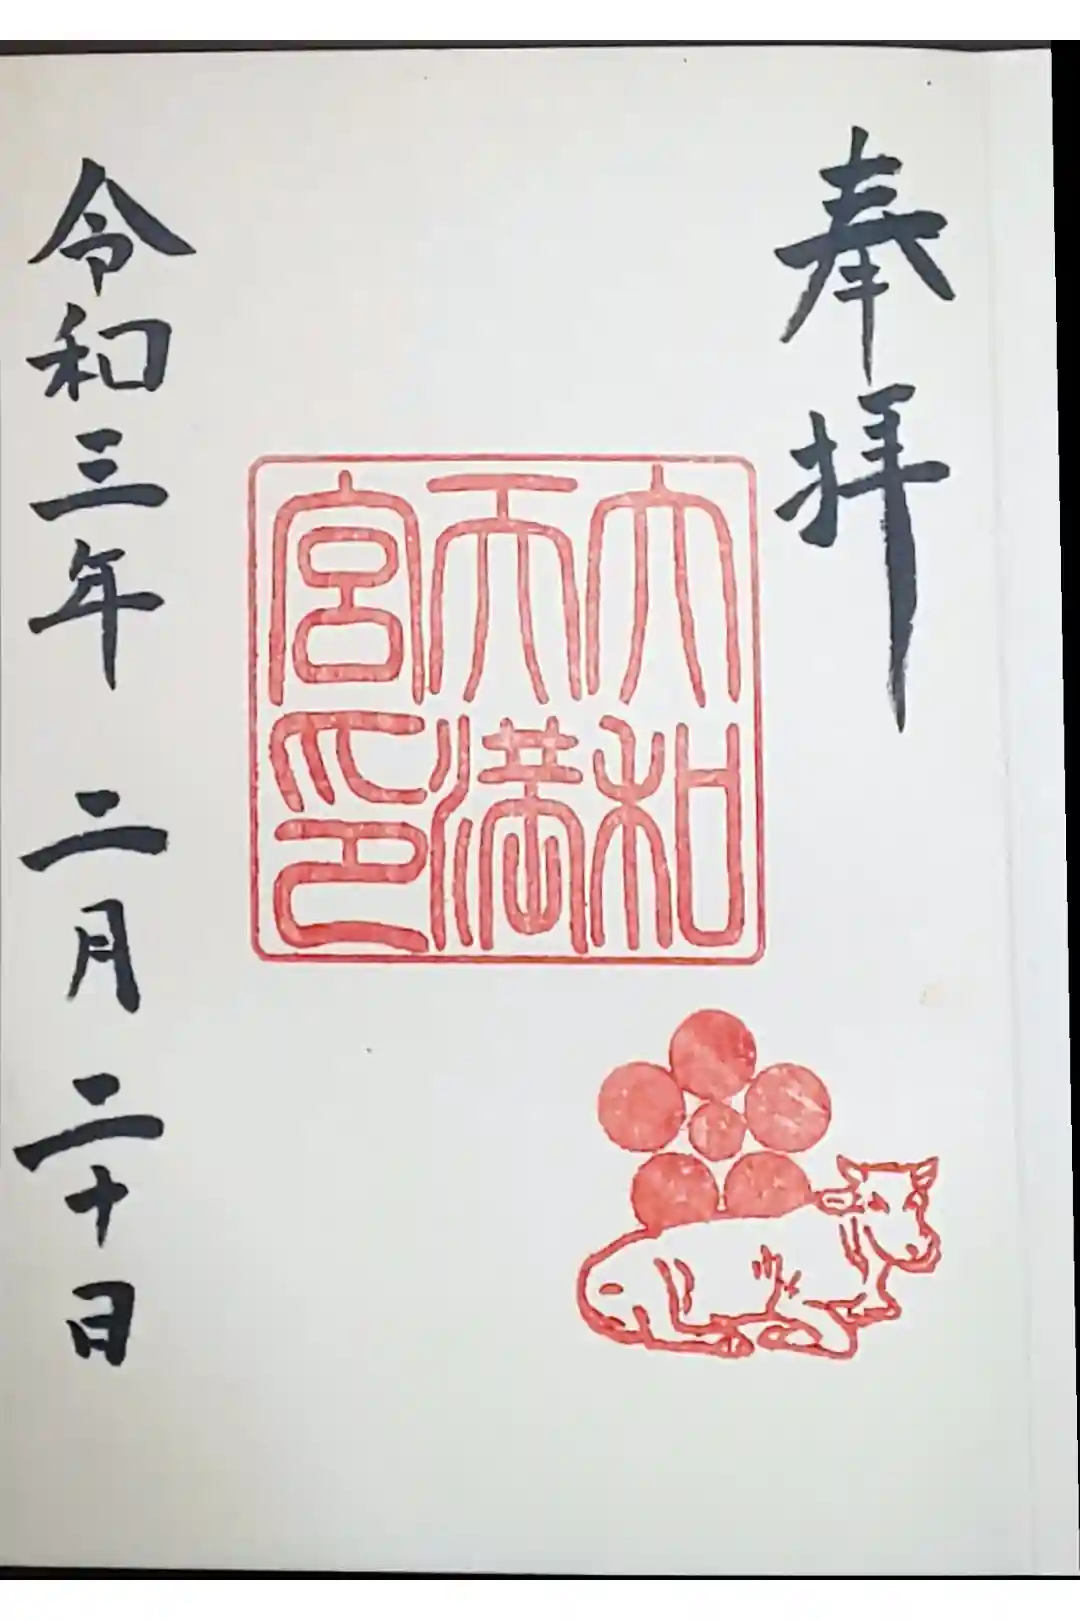 奉拝
大和
天満
宮印
令和三年 二月 二十日